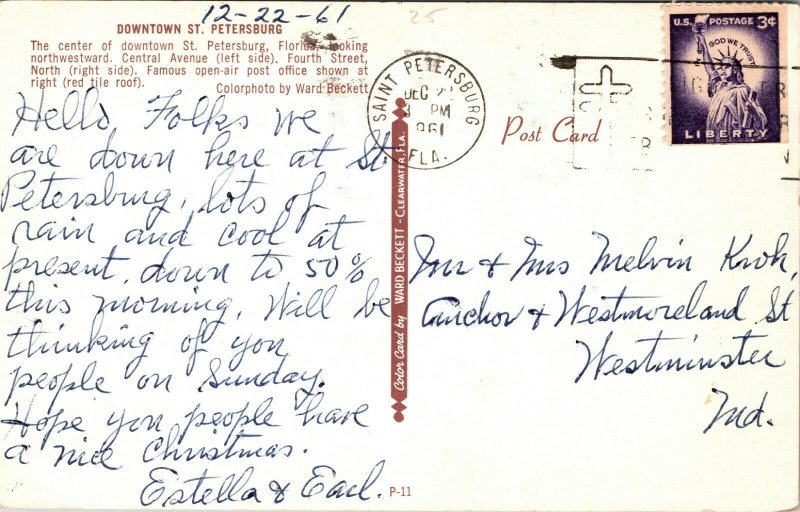 12-22-61
25
DOWNTOWN ST. PETERSBURG
The center of downtown St. Petersburg, Florida, looking
northwestward. Central Avenue (left side). Fourth Street,
North (right side). Famous open-air post office shown at
right (red tile roof). Colorphoto by Ward Beckett
Hello Folks we
are down here at St
Petersburg, lots of
rain and cool at
present, down to 50%
this morning. Will be
thinking of you
people on Sunday.
Hope you people have
a nice Christmas.
Estella & Earl.
P-11
Color Card by WARD BECKETT - CLEARWATER, FLA.
SAINT PETERSBURG
DEC
PM
1961
FLA.
Post Card
U.S. POSTAGE 3¢
IN GOD WE TRUST
LIBERTY
Mr & Mrs Melvin Kroh,
Anchor & Westmoreland St
Westminster
Md.